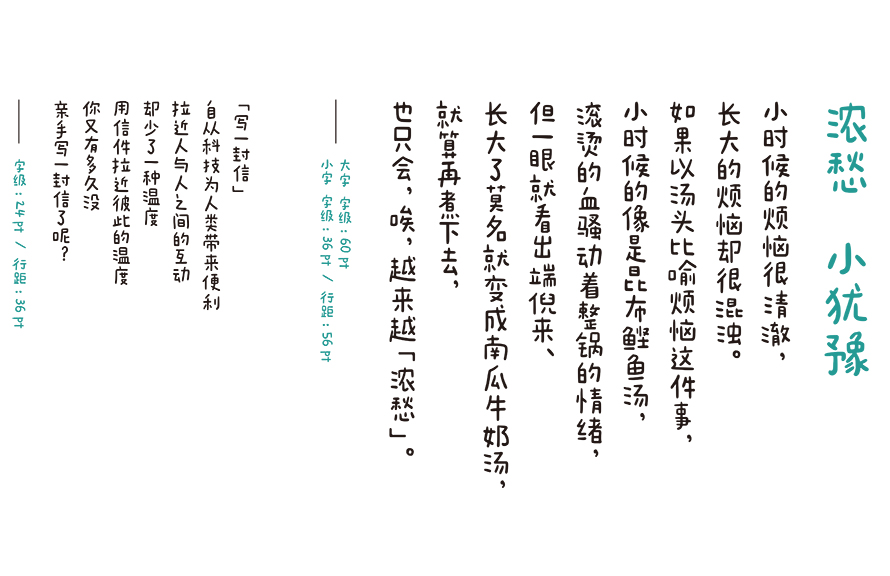 浓愁 小犹豫
小时候的烦恼很清澈，
长大的烦恼却很混浊。
如果以汤头比喻烦恼这件事，
小时候的像是昆布鲣鱼汤，
滚烫的血骚动着整锅的情绪，
但一眼就看出端倪来、
长大了莫名就变成南瓜牛奶汤，
就算再煮下去，
也只会，唉，越来越「浓愁」。
大字 字级：60 pt
小字 字级：36 pt / 行距：56 pt
「写一封信」
自从科技为人类带来便利
拉近人与人之间的互动
却少了一种温度
用信件拉近彼此的温度
你又有多久没
亲手写一封信了呢？
字级：24 pt / 行距：36 pt